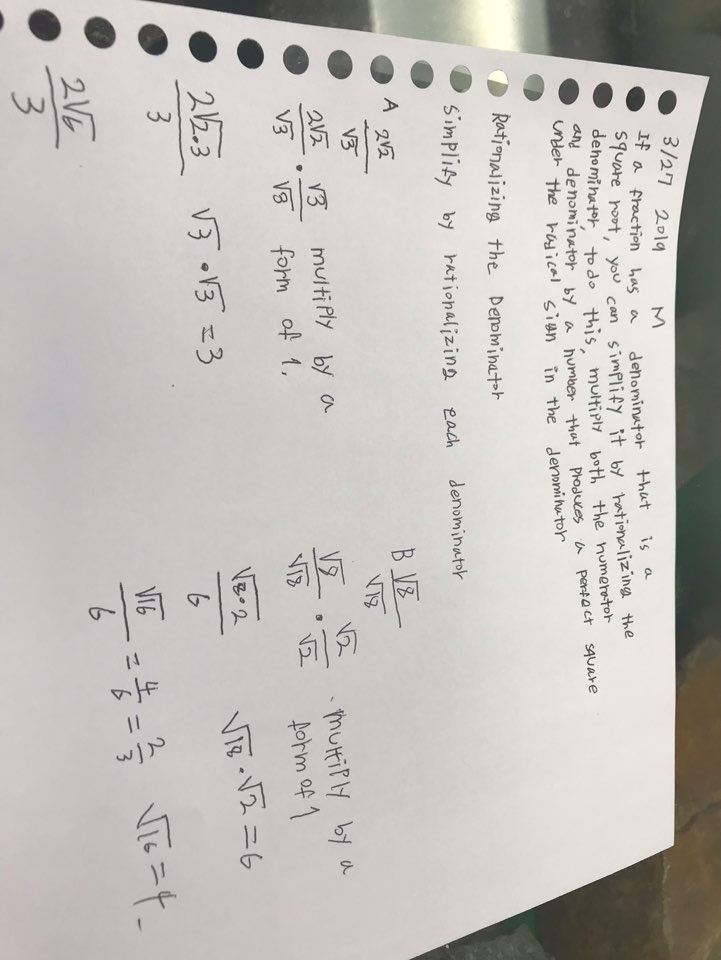 3/27 2019 M
If a fraction has a denominator that is a
square root, you can simplify it by rationalizing the
denominator, to do this, multiply both the numerator
and denominator by a number that produces a perfect square
under the radical sign in the denominator
Rationalizing the Denominator
Simplify by rationalizing each denominator
A 2√2/√3
2√2/√3 • √3/√3 multiply by a
form of 1.
2√2•3/3 √3•√3=3
2√6/3
B √8/√18
√8/√18 • √2/√2 . multiply by a
form of 1
√8•2/6 √18•√2=6
√16/6 = 4/6 = 2/3 √16=4-